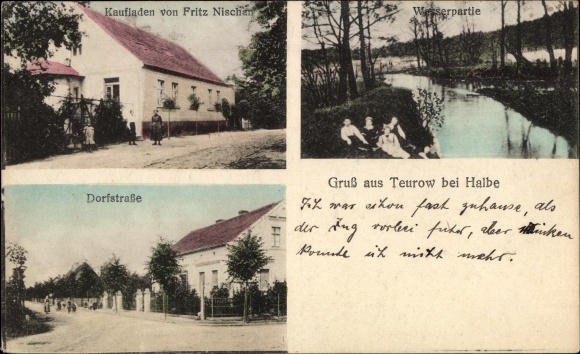 Kaufladen von Fritz Nischan
Wasserpartie
Dorfstraße
Gruß aus Teurow bei Halbe
Ich war schon fast zuhause, als
der Zug vorbei fuhr, aber winken
konnte ich nicht mehr.